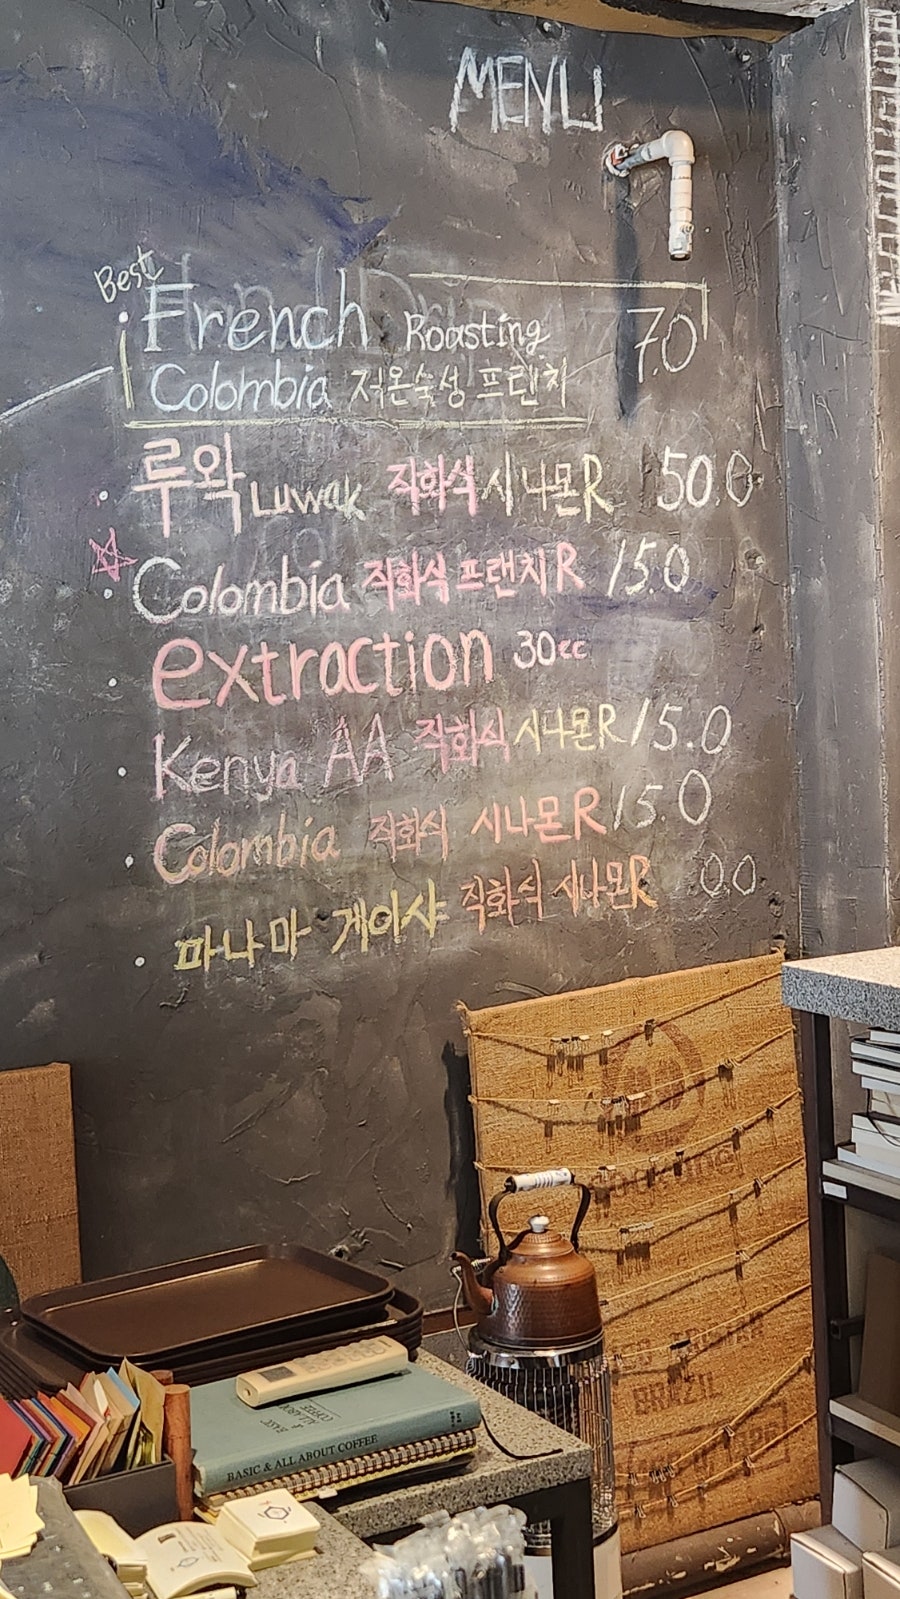 MENU
Best
French Roasting 7.0
Colombia 저온숙성 프랜치
루왁 Luwak 직화식 시나몬R 50.0
Colombia 직화식 프랜치R 15.0
extraction 30cc
Kenya AA 직화식 시나몬R 15.0
Colombia 직화식 시나몬R 15.0
파나마 게이샤 직화식 시나몬R 00
BRAZIL
BASIC & ALL ABOUT COFFEE
BASIC & ALL ABOUT COFFEE